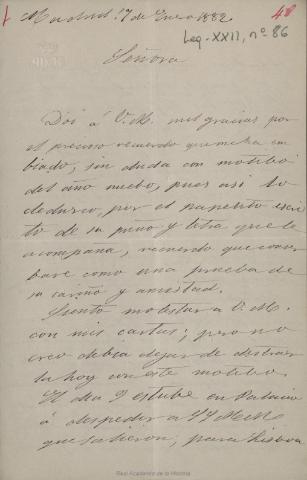 48
Madrid 17 de Enero 1882
Leg-XXII, nº 86
Señora
Doi á V. M. mil gracias por
el precioso recuerdo que me ha en
biado, sin duda con motibo
del año nuebo, pues asi lo
deduzco, por el papelito escri
to de su puño y letra que le
acompaña, recuerdo que conser
bare como una prueba de
su cariño y amistad.
Siento molestar a V. M.
con mis cartas; pero no
creo debia dejar de
la hoy con este motibo.
El dia 9 estube en Palacio
á despedir a SS MM
que salieron, para Lisboa
Real Academia de la Historia